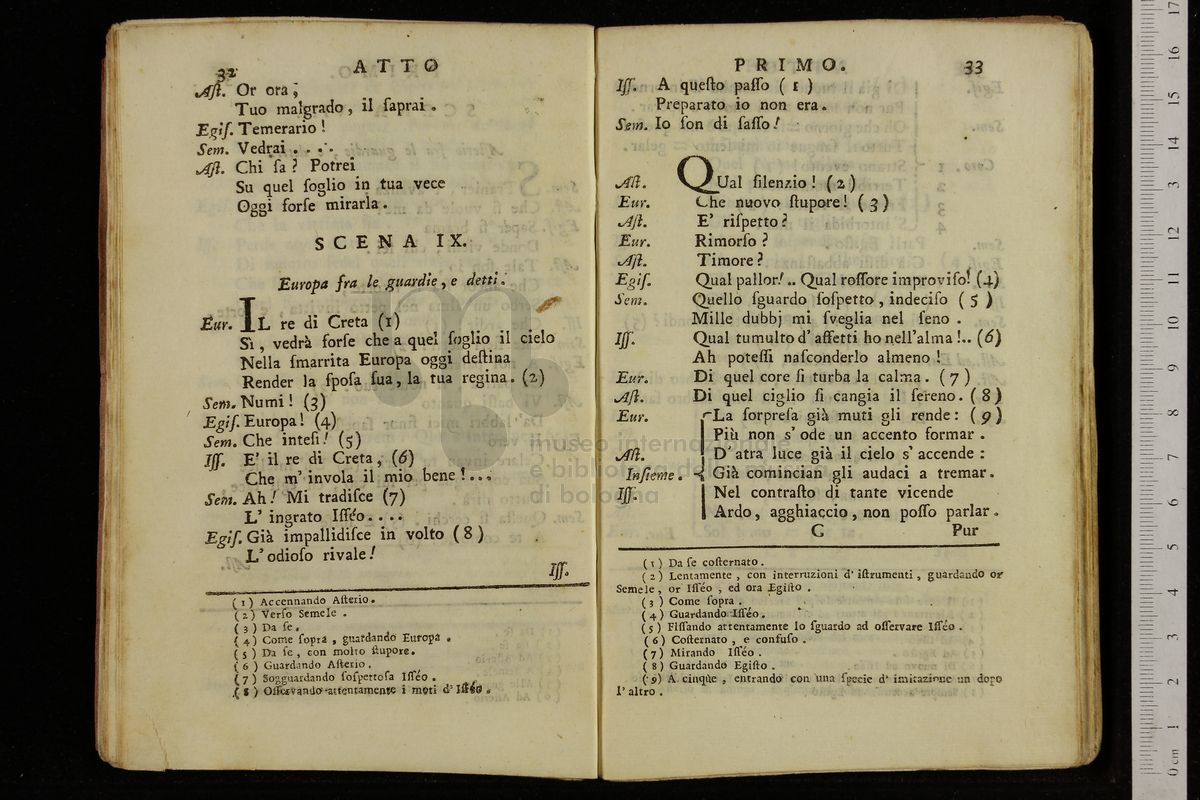 32 ATTO
Aſt. Or ora;
Tuo malgrado, il ſaprai.
Egiſ. Temerario!
Sem. Vedrai . . . .
Aſt. Chi ſa? Potrei
Su quel ſoglio in tua vece
Oggi forſe mirarla.
SCENA IX.
Europa fra le guardie, e detti.
Eur. IL re di Creta (1)
Sì, vedrà forſe che a quel ſoglio il cielo
Nella ſmarrita Europa oggi deſtina
Render la ſpoſa ſua, la tua regina. (2)
Sem. Numi! (3)
Egiſ. Europa! (4)
Sem. Che inteſi! (5)
Iſſ. E' il re di Creta, (6)
Che m' invola il mio bene!...
Sem. Ah! Mi tradiſce (7)
L' ingrato Iſſéo....
Egiſ. Già impallidiſce in volto (8)
L' odioſo rivale!
Iſſ.
(1) Accennando Aſterio.
(2) Verſo Semele.
(3) Da ſe.
(4) Come ſopra, guardando Europa.
(5) Da ſe, con molto ſtupore.
(6) Guardando Aſterio.
(7) Sogguardando ſoſpettoſa Iſſéo.
(8) Oſſervando attentamente i moti d' Iſſéo.
PRIMO. 33
Iſſ. A queſto paſſo (1)
Preparato io non era.
Sem. Io ſon di ſaſſo!
Aſt. QUal ſilenzio! (2)
Eur. Che nuovo ſtupore! (3)
Aſt. E' riſpetto?
Eur. Rimorſo?
Aſt. Timore?
Egiſ. Qual pallor!.. Qual roſſore improviſo! (4)
Sem. Quello ſguardo ſoſpetto, indeciſo (5)
Mille dubbj mi ſveglia nel ſeno.
Iſſ. Qual tumulto d' affetti ho nell'alma!.. (6)
Ah poteſſi naſconderlo almeno!
Eur. Di quel core ſi turba la calma. (7)
Aſt. Di quel ciglio ſi cangia il ſereno. (8)
Eur. La ſorpreſa già muti gli rende: (9)
Più non s' ode un accento formar.
Aſt. D' atra luce già il cielo s' accende:
Inſieme. Già comincian gli audaci a tremar.
Iſſ. Nel contraſto di tante vicende
Ardo, agghiaccio, non poſſo parlar.
C Pur
(1) Da ſe coſternato.
(2) Lentamente, con interruzioni d' iſtrumenti, guardando or
Semele, or Iſſéo, ed ora Egiſto.
(3) Come ſopra.
(4) Guardando Iſſéo.
(5) Fiſſando attentamente lo ſguardo ad oſſervare Iſſéo.
(6) Coſternato, e confuſo.
(7) Mirando Iſſéo.
(8) Guardando Egiſto.
(9) A cinque, entrando con una ſpecie d' imitazione un dopo
l' altro.
museo internazionale
e biblioteca della musica
di bologna